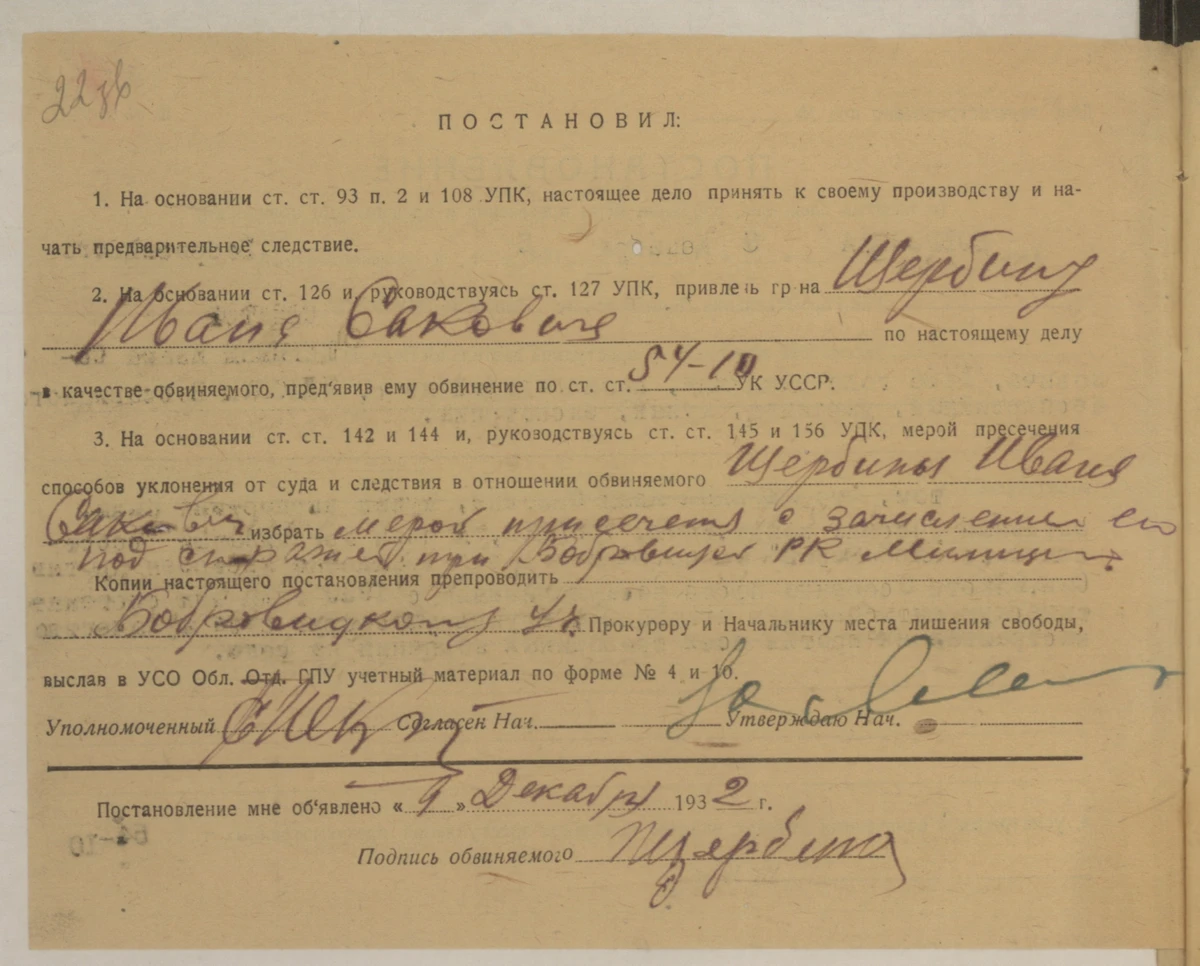 22 зв
ПОСТАНОВИЛ:
1. На основании ст. ст. 93 п. 2 и 108 УПК, настоящее дело принять к своему производству и на-
чать предварительное следствие.
2. На основании ст. 126 и руководствуясь ст. 127 УПК, привлечь гр на Щербину
Ивана Саковича по настоящему делу
в качестве обвиняемого, пред'явив ему обвинение по ст. ст. 54-10 УК УССР.
3. На основании ст. ст. 142 и 144 и, руководствуясь ст. ст. 145 и 156 УПК, мерой пресечения
способов уклонения от суда и следствия в отношении обвиняемого Щербины Ивана
Сакович избрать мерой пресечения с зачислением его
под стражей при Бобровицкой РК Милиции
Копии настоящего постановления препроводить
Бобровицкому Уч. Прокурору и Начальнику места лишения свободы,
выслав в УСО Обл. Отд. ГПУ учетный материал по форме № 4 и 10.
Уполномоченный Согласен Нач. Утверждаю Нач.
Постановление мне об'явлено « 9 » Декабря 1932 г.
Подпись обвиняемого Щербина
54-10